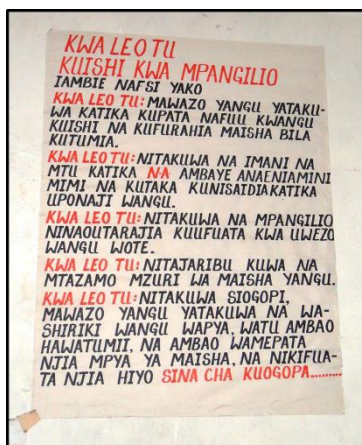 KWA LEO TU
KUISHI KWA MPANGILIO
IAMBIE NAFSI YAKO
KWA LEO TU: MAWAZO YANGU YATAKU-
WA KATIKA KUPATA NAFUU KWANGU
KUISHI NA KUFURAHIA MAISHA BILA
KUTUMIA.
KWA LEO TU: NITAKUWA NA IMANI NA
MTU KATIKA N.A AMBAYE ANAENIAMINI
MIMI NA KUTAKA KUNISAIDIA KATIKA
UPONAJI WANGU.
KWA LEO TU: NITAKUWA NA MPANGILIO
NINAOUTARAJIA KUUFUATA KWA UWEZO
WANGU WOTE.
KWA LEO TU: NITAJARIBU KUWA NA
MTAZAMO MZURI WA MAISHA YANGU.
KWA LEO TU: NITAKUWA SIOGOPI,
MAWAZO YANGU YATAKUWA NA WA-
SHIRIKI WANGU WAPYA, WATU AMBAO
HAWATUMII, NA AMBAO WAMEPATA
NJIA MPYA YA MAISHA, NA NIKIFUA-
TA NJIA HIYO SINA CHA KUOGOPA.........